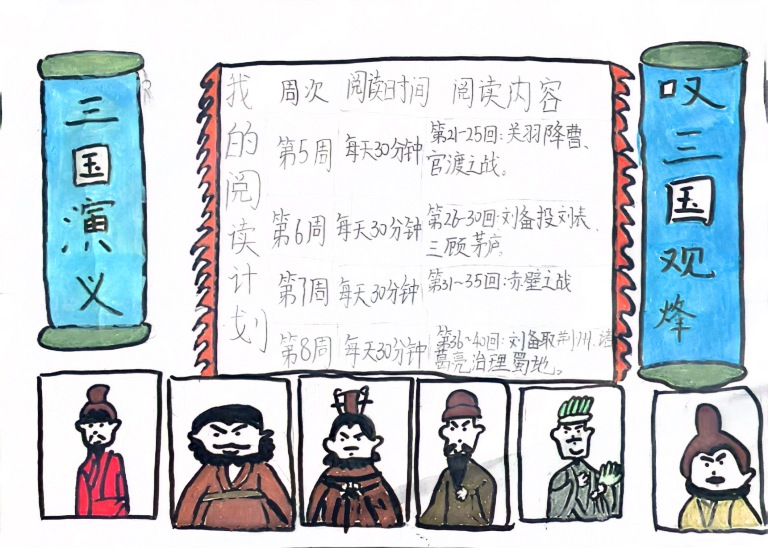 三国演义
我的阅读计划
周次 阅读时间 阅读内容
第5周 每天30分钟 第21-25回:关羽降曹、
官渡之战。
第6周 每天30分钟 第26-30回:刘备投刘表、
三顾茅庐
第7周 每天30分钟 第31~35回:赤壁之战
第8周 每天30分钟 第36~40回:刘备取荆州.诸
葛亮治理蜀地。
叹三国观烽